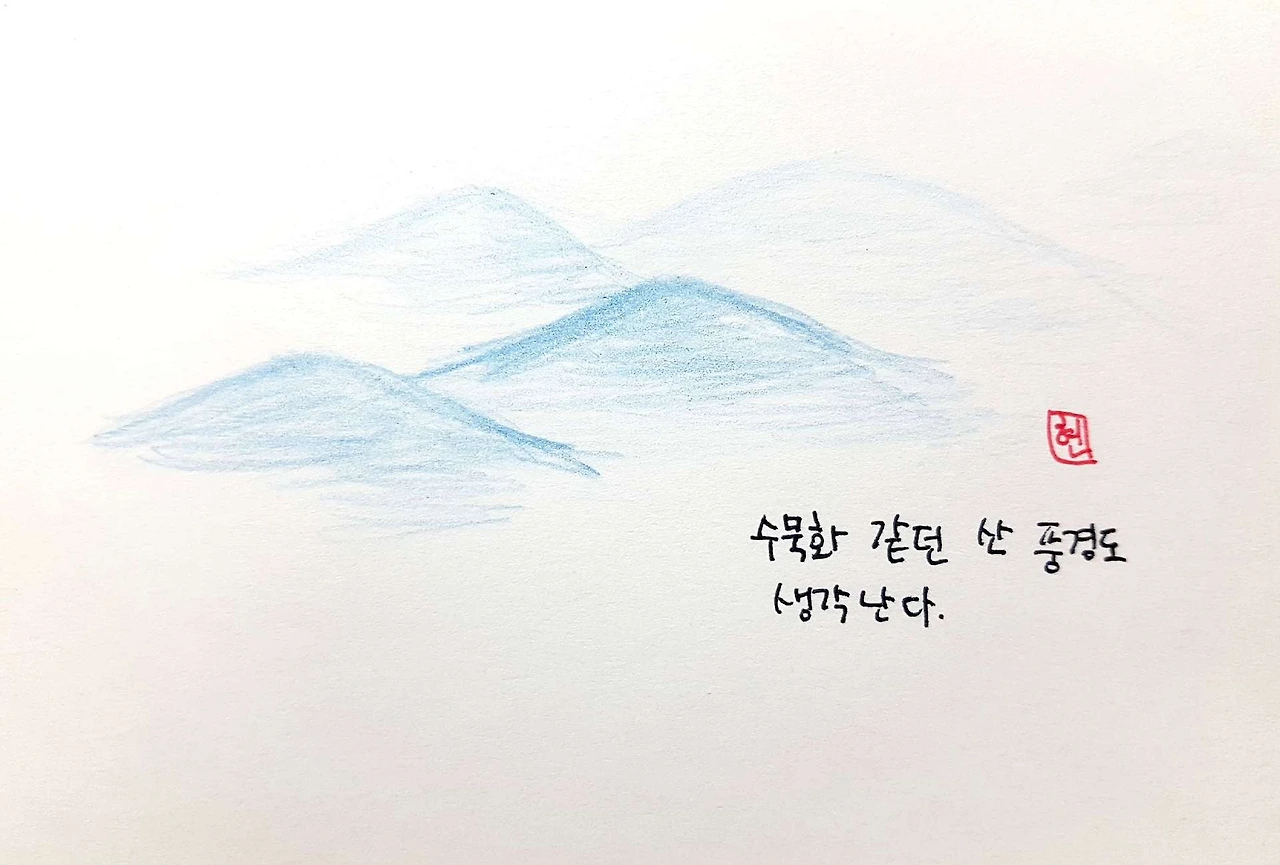 현
수묵화 같던 산 풍경도
생각난다.